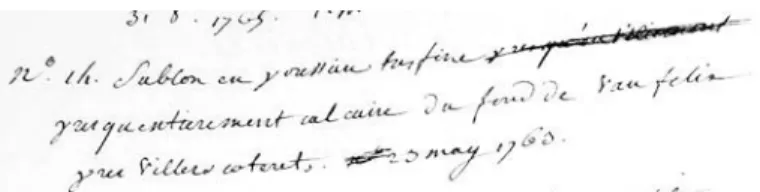 31. 8. 1765.
n.° 1h. Sablon en poussiere tres fine
presqu entierement calcaire du fond de Vau felix
pres Villers coterets. 23 may 1763.